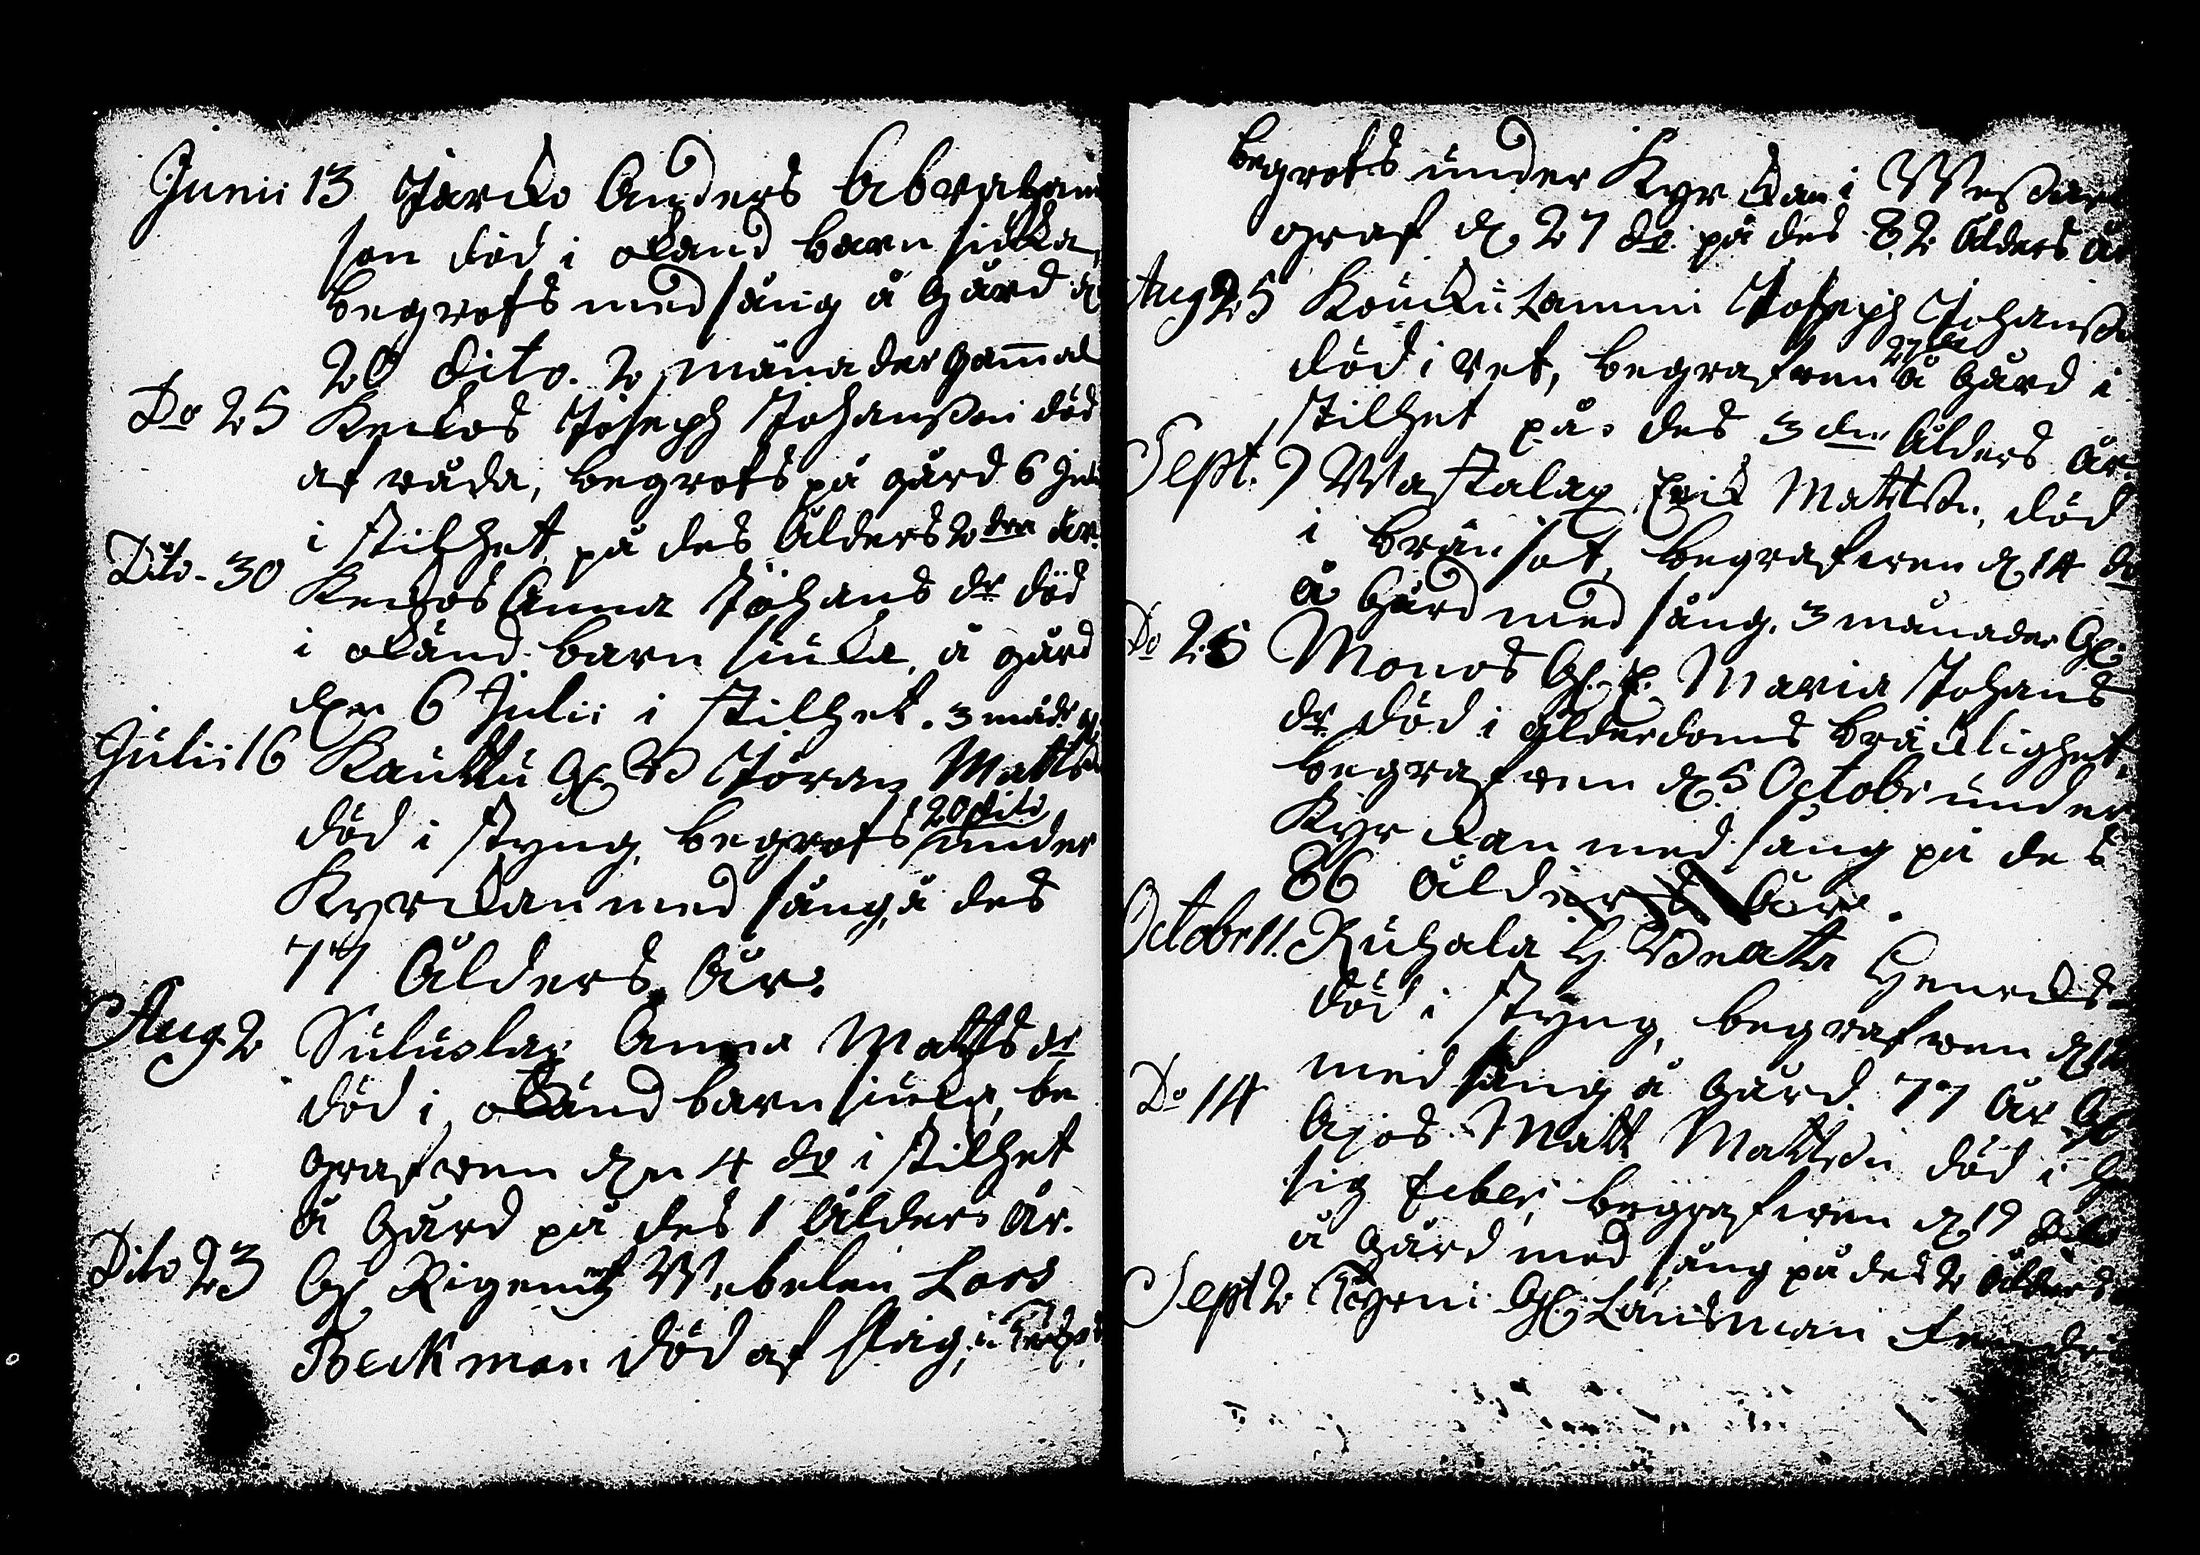 Junii 13 Jarcko Anders Abraham
son död i okänd barn siucka,
begrofs med sång å gård d.
20 dito. 2 månader gammal
Do 25 Keckos Joseph Johansson död
af råda, begrofs på gård 6 Julii
i stillhet, på des Ålders 2 dra år.
Dito - 30 Keckos Anna Johans dr död
i okänd barn siucka, å gård
den 6 Julii i stillhet. 3 mådr gl
Julii 16 Kauttu Gl. Jöran Matts
död i styng, begrofs 20 dito under
Kyrckan med sång, å des
77 Ålders År.
Aug. 2 Suluslax Anna Matts dr
död i okänd barn siucka, be
grafwen den 4 do i stillhet
å Gård på des 1 Ålders År.
Dito 23 Gl. Lars
Beckman död af slag, i
begrofs under Kyrckan i
graf d. 27 do på des 82 Ålders År
Aug 25 Kouckulammi Joseph Johansson
död i ret, begrafwen 27 do å Gård i
stillhet på des 3 die Ålders År.
Sept. 9 Wastalax Erik Mattsson, död
i bränsot, begrafwen d. 14 do
å Gård med sång, 3 månader Gl.
Do 26 Monos Gl. E. Maria Johans
dr död i ålderdoms bräcklighet,
begrafwen d. 5 Octobr under
Kyrckan med sång på des
86 Ålders År.
Octobr 11. Ruhala H. Beata Henricks
död i styng, begrafwen d. 12
med sång å Gård 77 År Gl
Do 14 Ajos Matt Mattsson död i
tig feber, begrafwen d. 19 Dito
å Gård med sång på des 2 Ålders
Sept 2 Gl. Länsman